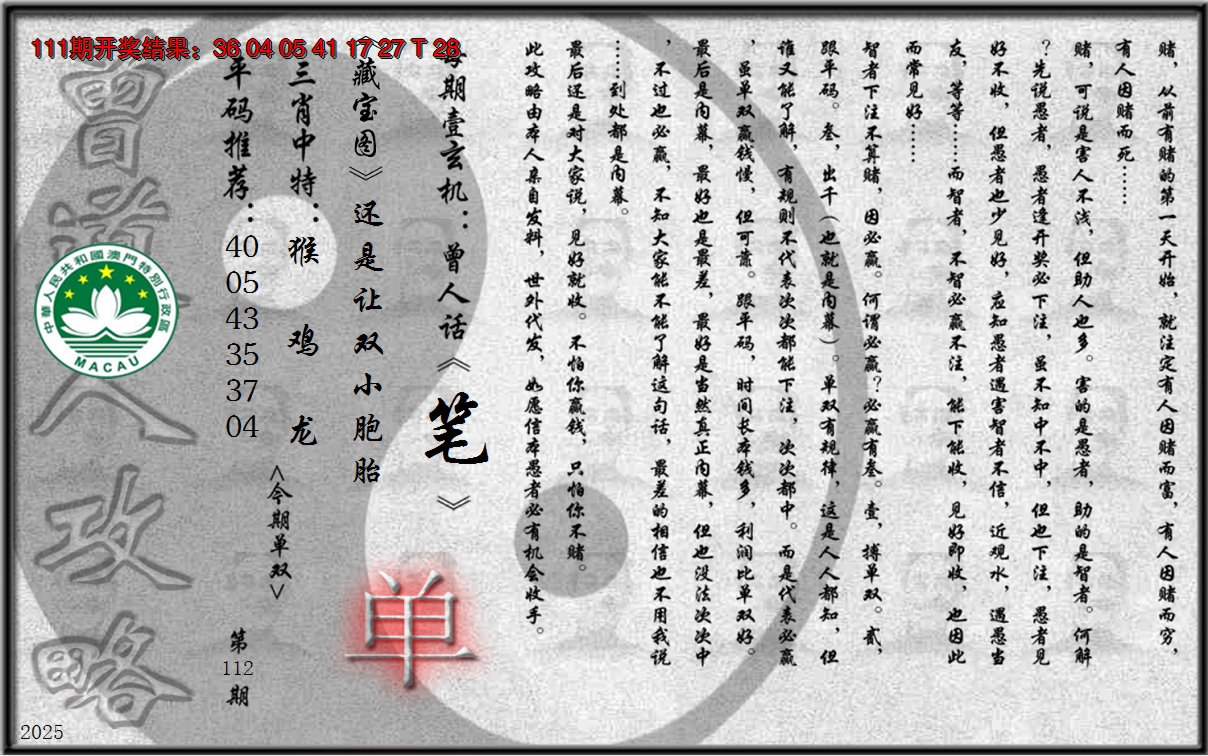 111期开奖结果：36 04 05 41 17 27 T 28
赌，从前有赌的第一天开始，就注定有人因赌而富，有人因赌而穷，
有人因赌而死……
赌，可说是害人不浅，但助人也多。害的是愚者，助的是智者。何解
？先说愚者，愚者逢开奖必下注，虽不知中不中，但也下注，愚者见
好不收，但愚者也少见好，应知愚者遇害智者不信，近观水，遇愚当
友，等等……而智者，不智必赢不注，能下能收，见好即收，也因此
而常见好……
智者下注不算赌，因必赢。何谓必赢？必赢有叁。壹，搏单双。贰，
跟平码。叁，出千（也就是内幕）。单双有规律，这是人人都知，但
谁又能了解，有规则不代表次次都能下注，次次都中。而是代表必赢
，虽单双赢钱慢，但可靠。跟平码，时间长本钱多，利润比单双好。
最后是内幕，最好也是最差，最好是当然真正内幕，但也没法次次中
，不过也必赢，不知大家能不能了解这句话，最差的相信也不用我说
……到处都是内幕。
最后还是对大家说，见好就收。不怕你赢钱，只怕你不赌。
此攻略由本人亲自发料，世外代发，如愿信本愚者必有机会收手。
每期壹玄机：曾人话《笔》
《藏宝图》还是让双小胞胎
三肖中特：猴 鸡 龙
平码推荐：40 05 43 35 37 04
<今期单双>
单
第112期
曾道人攻略
中華人民共和國澳門特別行政區
MACAU
2025